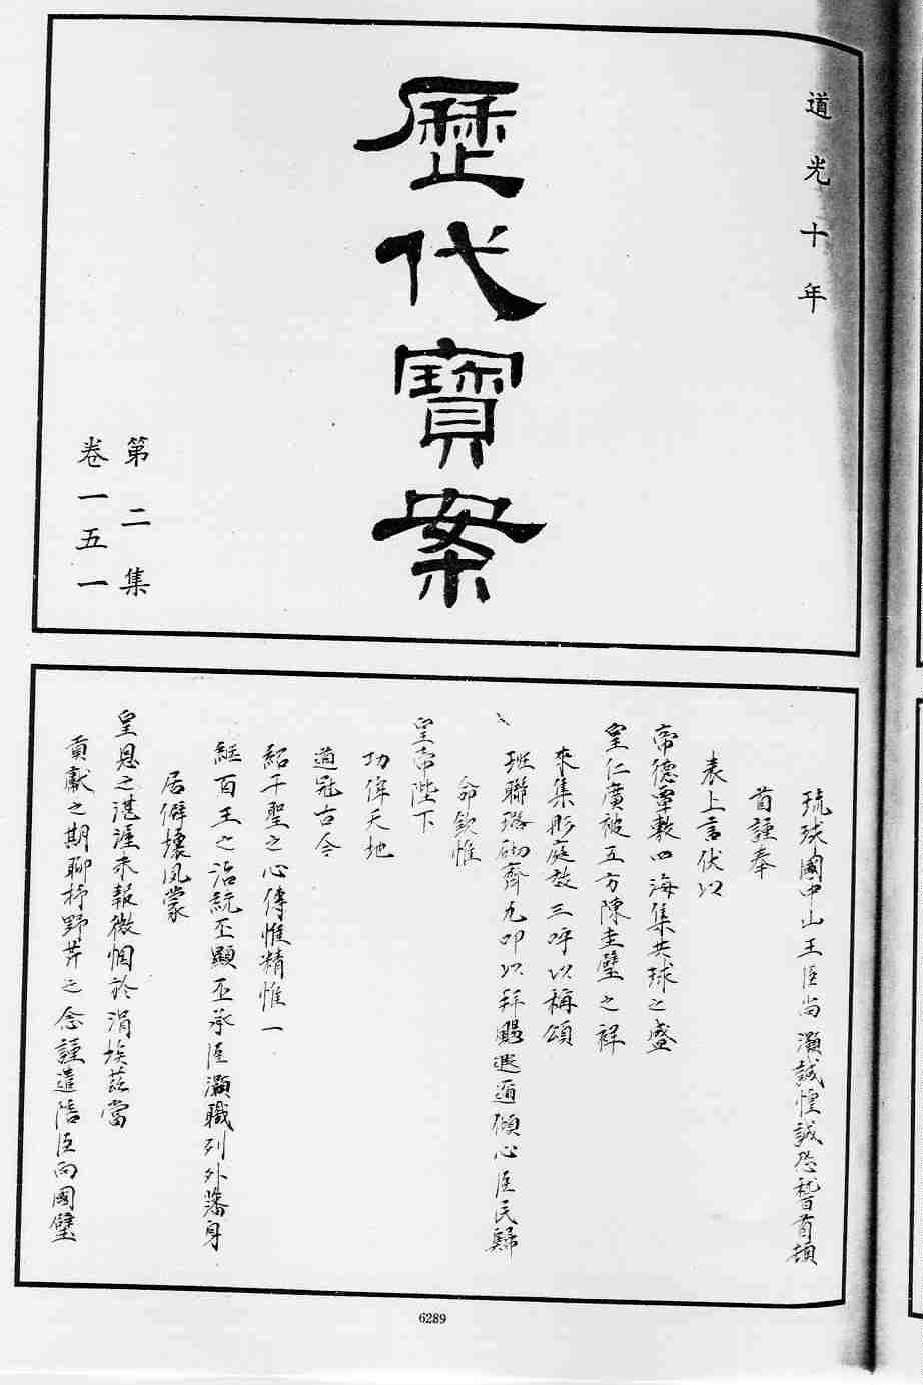 道光十年
歷代寶案
第二集
卷一五一
琉球國中山王臣尚灝誠惶誠恐稽首頓
首謹奉
表上言伏以
帝德覃敷四海集共球之盛
皇仁廣被五方陳圭璧之祥
來集彤庭效三呼以稱頌
班聯璐砌齊九叩以拜颺遐邇傾心臣民歸
命欽惟
皇帝陛下
功侔天地
道冠古今
紹千聖之心傳惟精惟一
紹百王之治統丕顯丕承臣灝職列外藩身
居僻壤夙蒙
皇恩之湛溼未報微悃於涓埃茲當
貢獻之期聊抒野芹之念謹遣陪臣向國璧
6289